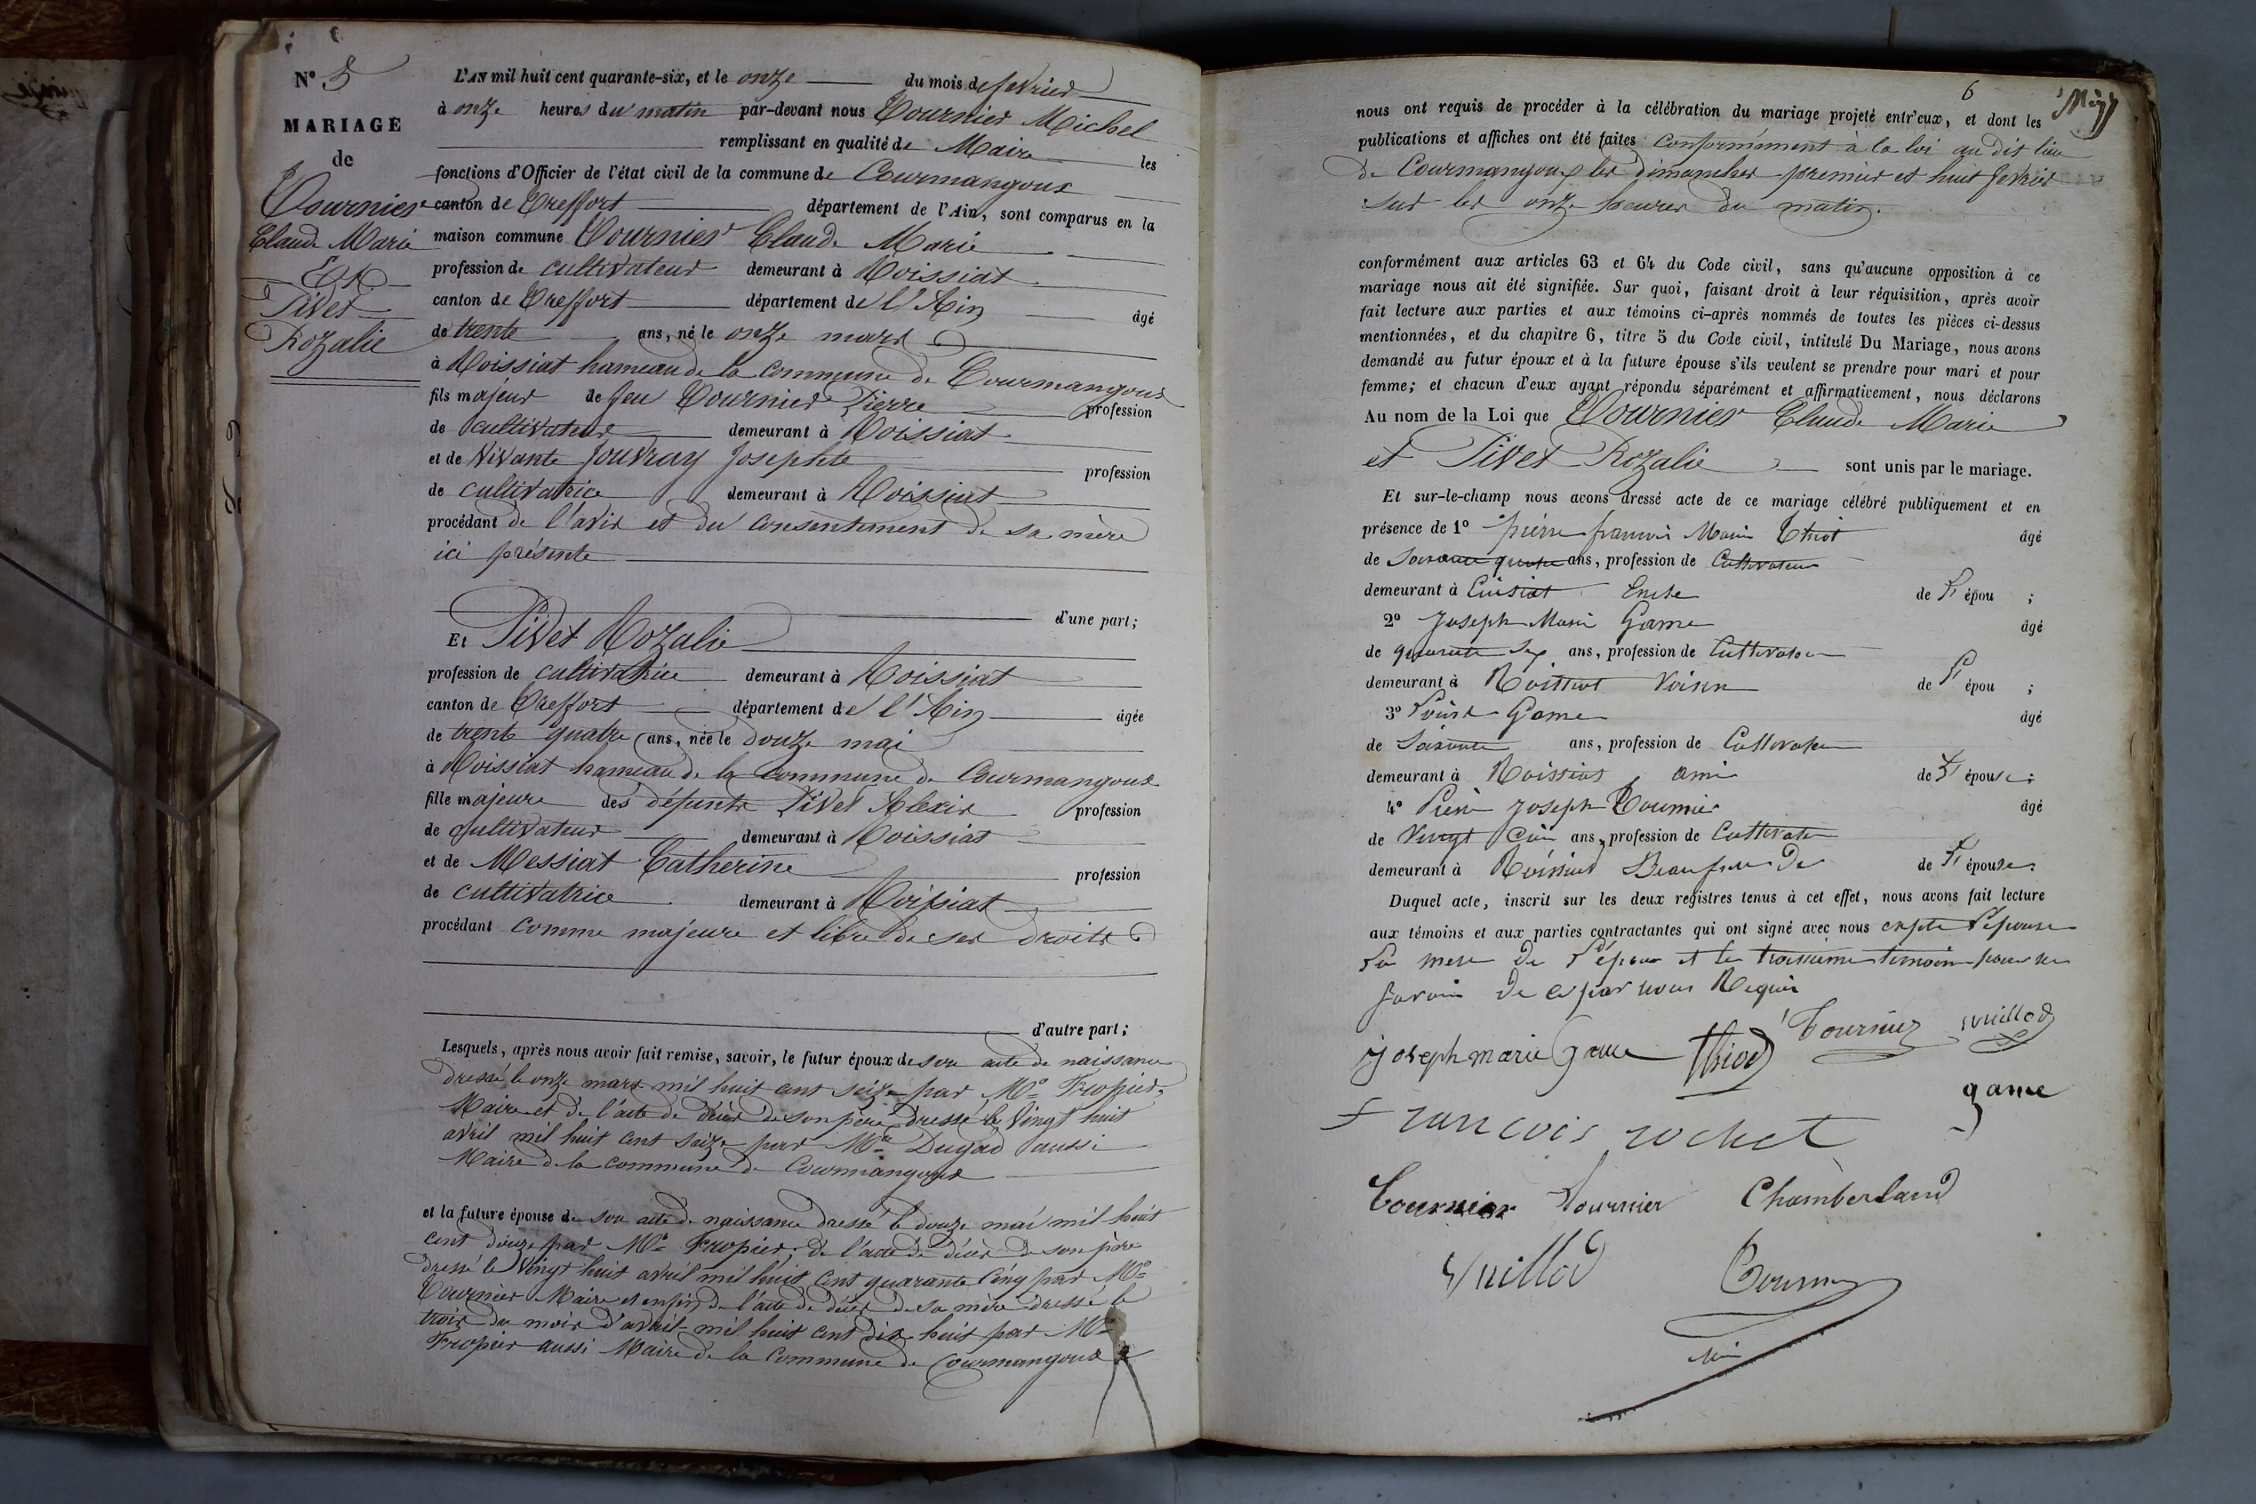 N° 5
MARIAGE
de
Tournier
Claude Marie
Et
Pivet
Rozalie
L'AN mil huit cent quarante-six, et le onze du mois de fevrier
à onze heures du matin par-devant nous Tournier Michel
remplissant en qualité de Maire les
fonctions d'Officier de l'état civil de la commune de Courmangoux
canton de Treffort département de l'Ain, sont comparus en la
maison commune Tournier Claude Marie
profession de cultivateur demeurant à Roissiat
canton de Treffort département de l'Ain âgé
de trente ans, né le onze mars
à Roissiat hameau de la commune de Courmangoux
fils majeur de feu Tournier Pierre profession
de cultivateur demeurant à Roissiat
et de vivante Jouvray Josephte profession
de cultivatrice demeurant à Roissiat
procédant de l'avis et du consentement de sa mère
ici présente
d'une part;
Et Pivet Rozalie
profession de cultivatrice demeurant à Roissiat
canton de Treffort département de l'Ain âgée
de trente quatre ans, née le douze mai
à Roissiat hameau de la commune de Courmangoux
fille majeure des défunts Pivet Alexis profession
de cultivateur demeurant à Roissiat
et de Messiat Catherine profession
de cultivatrice demeurant à Roissiat
procédant comme majeure et libre de ses droits
d'autre part;
Lesquels, après nous avoir fait remise, savoir, le futur époux de son acte de naissance
dressé le onze mars mil huit cent seize par Mr Fropier
Maire et de l'acte de décès de son père dressé le vingt huit
avril mil huit cent seize par Mr Dugad aussi
Maire de la commune de Courmangoux
et la future épouse de son acte de naissance dressé le douze mai mil huit
cent douze par Mr Fropier; de l'acte de décès de son père
dressé le vingt huit avril mil huit cent quarante cinq par Mr
Tournier Maire et enfin de l'acte de décès de sa mère dressé le
trois du mois d'avril mil huit cent dix huit par Mr
Fropier aussi Maire de la commune de Courmangoux
6
nous ont requis de procéder à la célébration du mariage projeté entr'eux, et dont les
publications et affiches ont été faites conformément à la loi au dit lieu
de Courmangoux les dimanches premier et huit fevrier
sur les onze heures du matin.
conformément aux articles 63 et 64 du Code civil, sans qu'aucune opposition à ce
mariage nous ait été signifiée. Sur quoi, faisant droit à leur réquisition, après avoir
fait lecture aux parties et aux témoins ci-après nommés de toutes les pièces ci-dessus
mentionnées, et du chapitre 6, titre 5 du Code civil, intitulé Du Mariage, nous avons
demandé au futur époux et à la future épouse s'ils veulent se prendre pour mari et pour
femme; et chacun d'eux ayant répondu séparément et affirmativement, nous déclarons
Au nom de la Loi que Tournier Claude Marie
et Pivet Rozalie sont unis par le mariage.
Et sur-le-champ nous avons dressé acte de ce mariage célébré publiquement et en
présence de 1° pierre francois Marie Thiot âgé
de soixante ans, profession de Cultivateur
demeurant à Cuisiat Oncle de l' épou ;
2° Joseph Marie Game âgé
de quarante six ans, profession de Cultivateur
demeurant à Roissiat Voisin de l' épou ;
3° Louis Game âgé
de soixante ans, profession de Cultivateur
demeurant à Roissiat ami de l' épouse;
4° Pierre Joseph Tournier âgé
de Vingt Cinq ans, profession de Cultivateur
demeurant à Roissiat Beaufrere de de l' épouse.
Duquel acte, inscrit sur les deux registres tenus à cet effet, nous avons fait lecture
aux témoins et aux parties contractantes qui ont signé avec nous excepté l'épouse
la mere de l'époux et le troisieme temoin pour ne
savoir de ce par nous Requis
joseph marie game Thiod Tournier vuillod
game
francois rochet
Tournier Tournier Chamberland
Vuillod Tournier